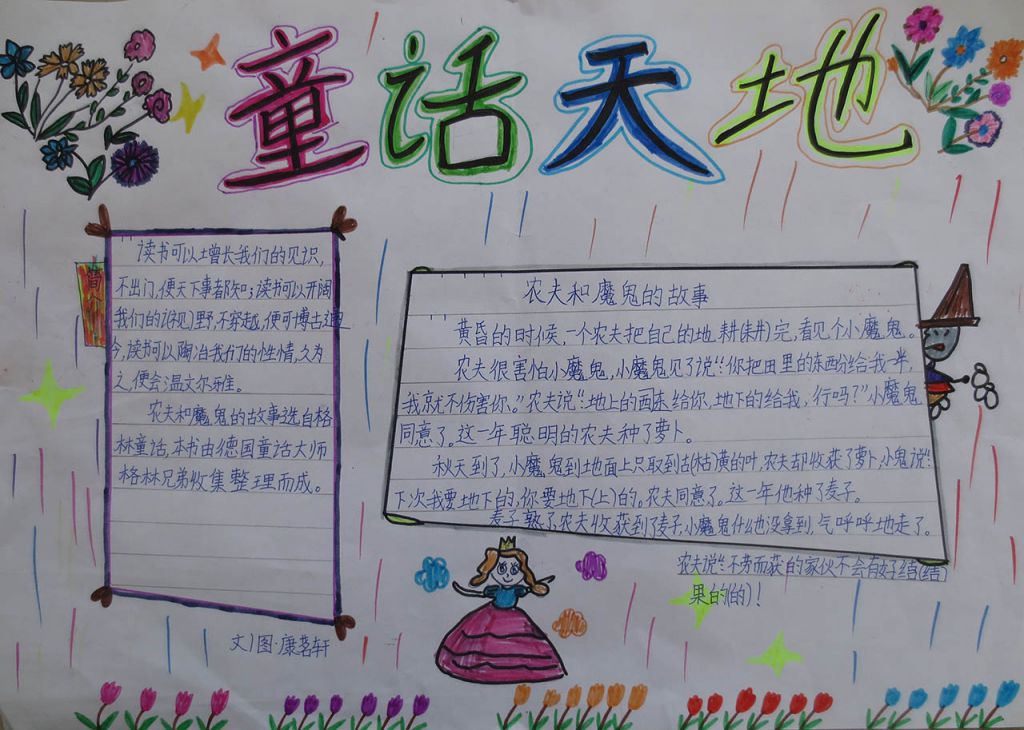 童话天地
简介
读书可以增长我们的见识,
不出门,便天下事都知;读书可以开阔
我们的识见)野,不穿越,便可博古通
今,读书可以陶冶我们的性情,久为
之,便会温文尔雅。
农夫和魔鬼的故事选自格
林童话,本书由德国童话大师
格林兄弟收集整理而成。
文/图·康茗轩
农夫和魔鬼的故事
黄昏的时候,一个农夫把自己的地耕(耕)完,看见个小魔鬼。
农夫很害怕小魔鬼,小魔鬼见了说:“你把田里的东西分给我一半,
我就不伤害你。”农夫说:“地上的东西给你,地下的给我,行吗?”小魔鬼
同意了。这一年聪明的农夫种了萝卜。
秋天到了,小魔鬼到地面上只取到枯(枯)黄的叶,农夫却收获了萝卜,小鬼说:“
下次我要地下的,你要地下(上)的。农夫同意了。这一年他种了麦子。
麦子熟了,农夫收获到了麦子,小魔鬼什么也没拿到,气呼呼地走了。
农夫说:“不劳而获的家伙不会有好结(结)
果的(的)!